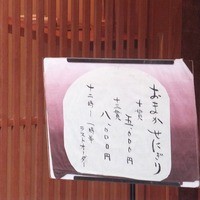 おまかせにぎり
十貫
五、000円
十三貫
八、000円
十二時〜一時半
ラストオーダー